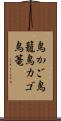 鳥かご鳥
籠鳥カゴ
鳥篭